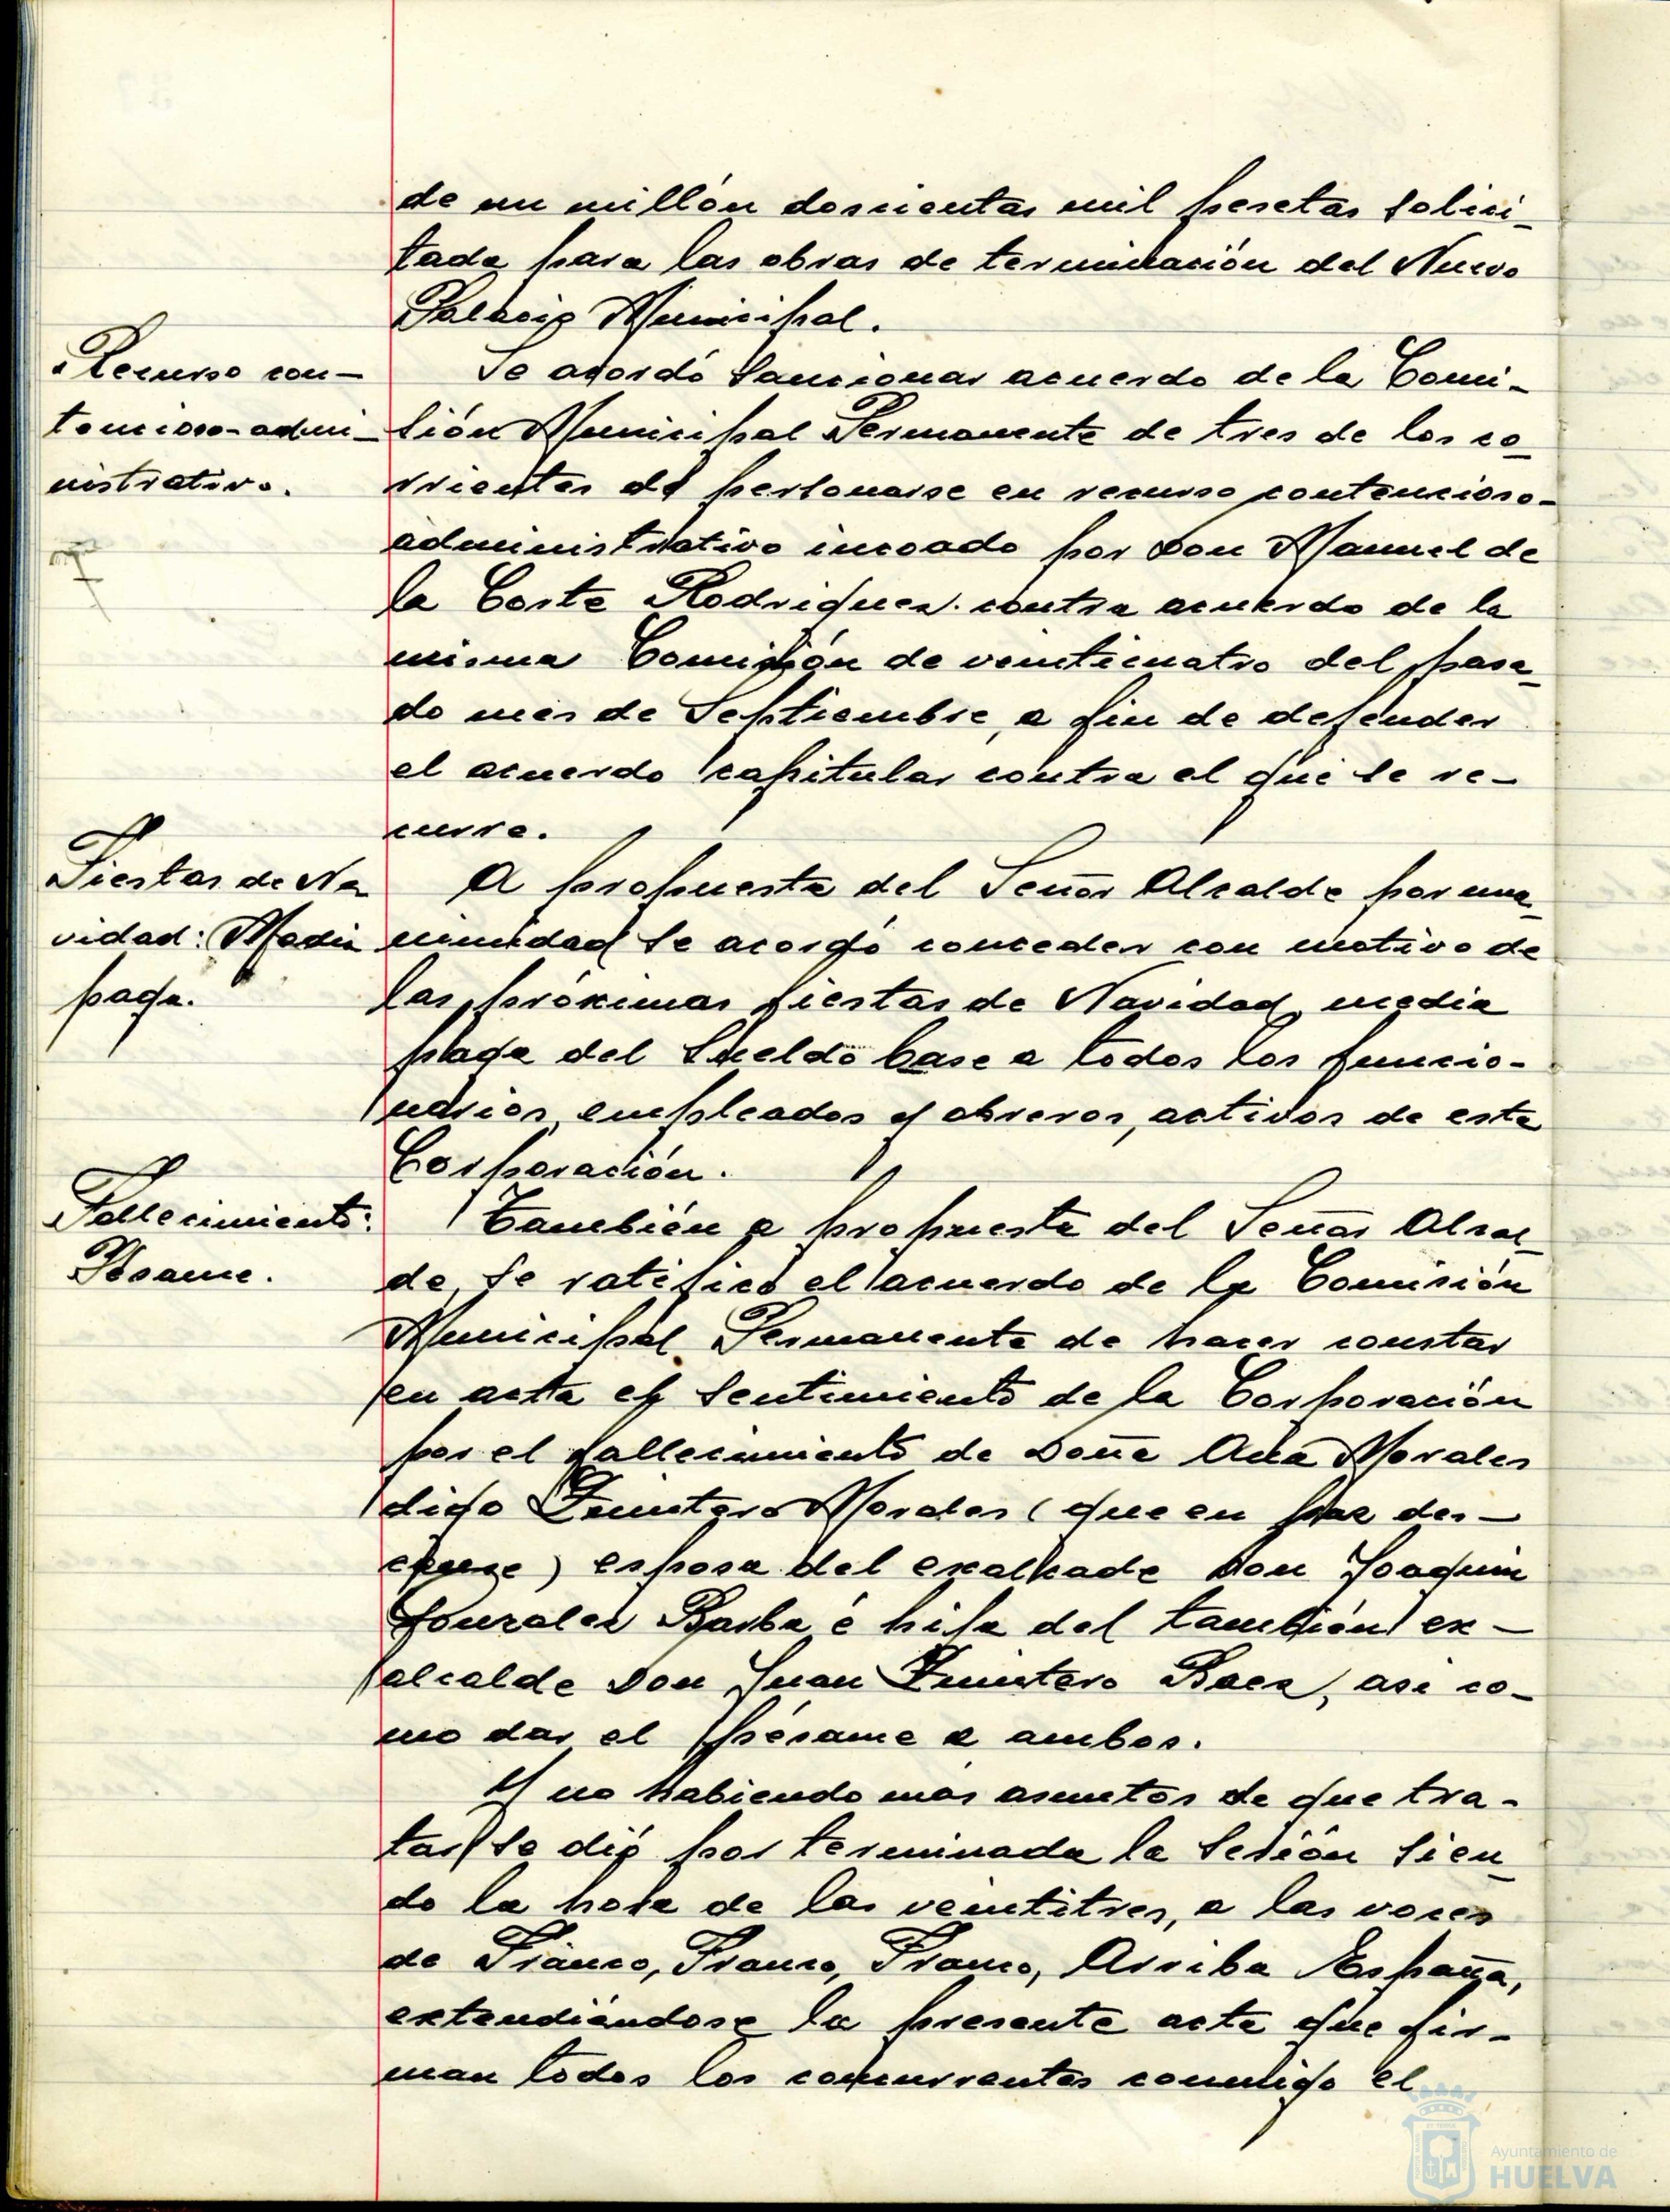 de un millón doscientas mil pesetas solici-
tada para las obras de terminación del Nuevo
Palacio Municipal.
Recurso con-
tencioso-admi-
nistrativo.
Se acordó sancionar acuerdo de la Comi-
sión Municipal Permanente de tres de los co-
rrientes de personarse en recurso contencioso-
administrativo incoado por Don Manuel de
la Corte Rodriguez contra acuerdo de la
misma Comisión de veinticuatro del pasa-
do mes de Septiembre, a fin de defender
el acuerdo capitular contra el que se re-
curre.
Fiestas de Na
vidad: Media
paga.
A propuesta del Señor Alcalde por una-
nimidad se acordó conceder con motivo de
las próximas fiestas de Navidad media
paga del sueldo base a todos los funcio-
narios, empleados y obreros, activos de esta
Corporación.
Fallecimiento:
Pésame.
También a propuesta del Señor Alcal-
de, se ratificó el acuerdo de la Comisión
Municipal Permanente de hacer constar
en acta el sentimiento de la Corporación
por el fallecimiento de Doña Ana Morales
digo Quintero Morales (que en paz des-
canse) esposa del exalcade Don Joaquin
Gonzalez Barba é hija del también ex-
alcalde Don Juan Quintero Baez, asi co-
mo dar el pésame a ambos.
Y no habiendo mas asuntos de que tra-
tar se dió por terminada la sesión sien-
do la hora de las veintitres, a las voces
de Franco, Franco, Franco, Arriba España,
extendiéndose la presente acta que fir-
man todos los concurrentes conmigo el
Ayuntamiento de
HUELVA